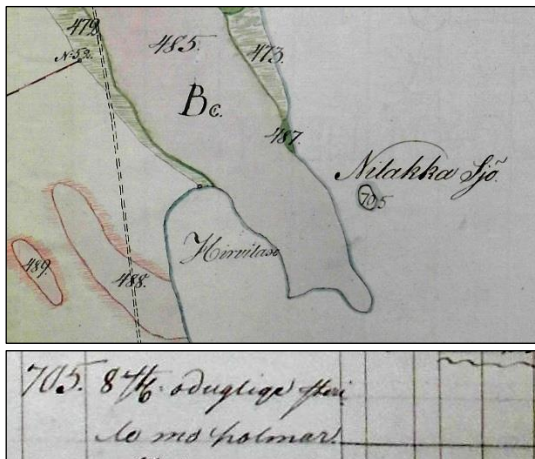 479.
485.
473.
No 52.
Bc.
487.
Nilakka Sjö.
705
Hirvilaso
489.
488.
705. 8 odugliga
små holmar